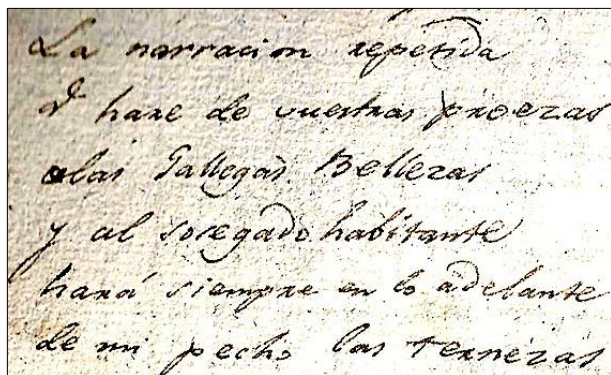 La narracion repetida
q̃ hare de vuestras proezas
a las Gallegas Bellezas
y al socegado habitante
hará siempre en lo adelante
de mi pecho las ternezas